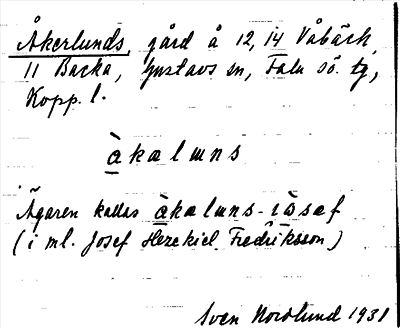 Åkerlunds, gård å 12, 14 Våbäck,
11 Backa, Gustavs sn, Falu sö. tg,
Kopp. l.
àkalɯns
Ägaren kallas àkalɯns-ìåsef
(i ml. Josef Hezekiel Fredriksson)
Sven Nordlund 1931